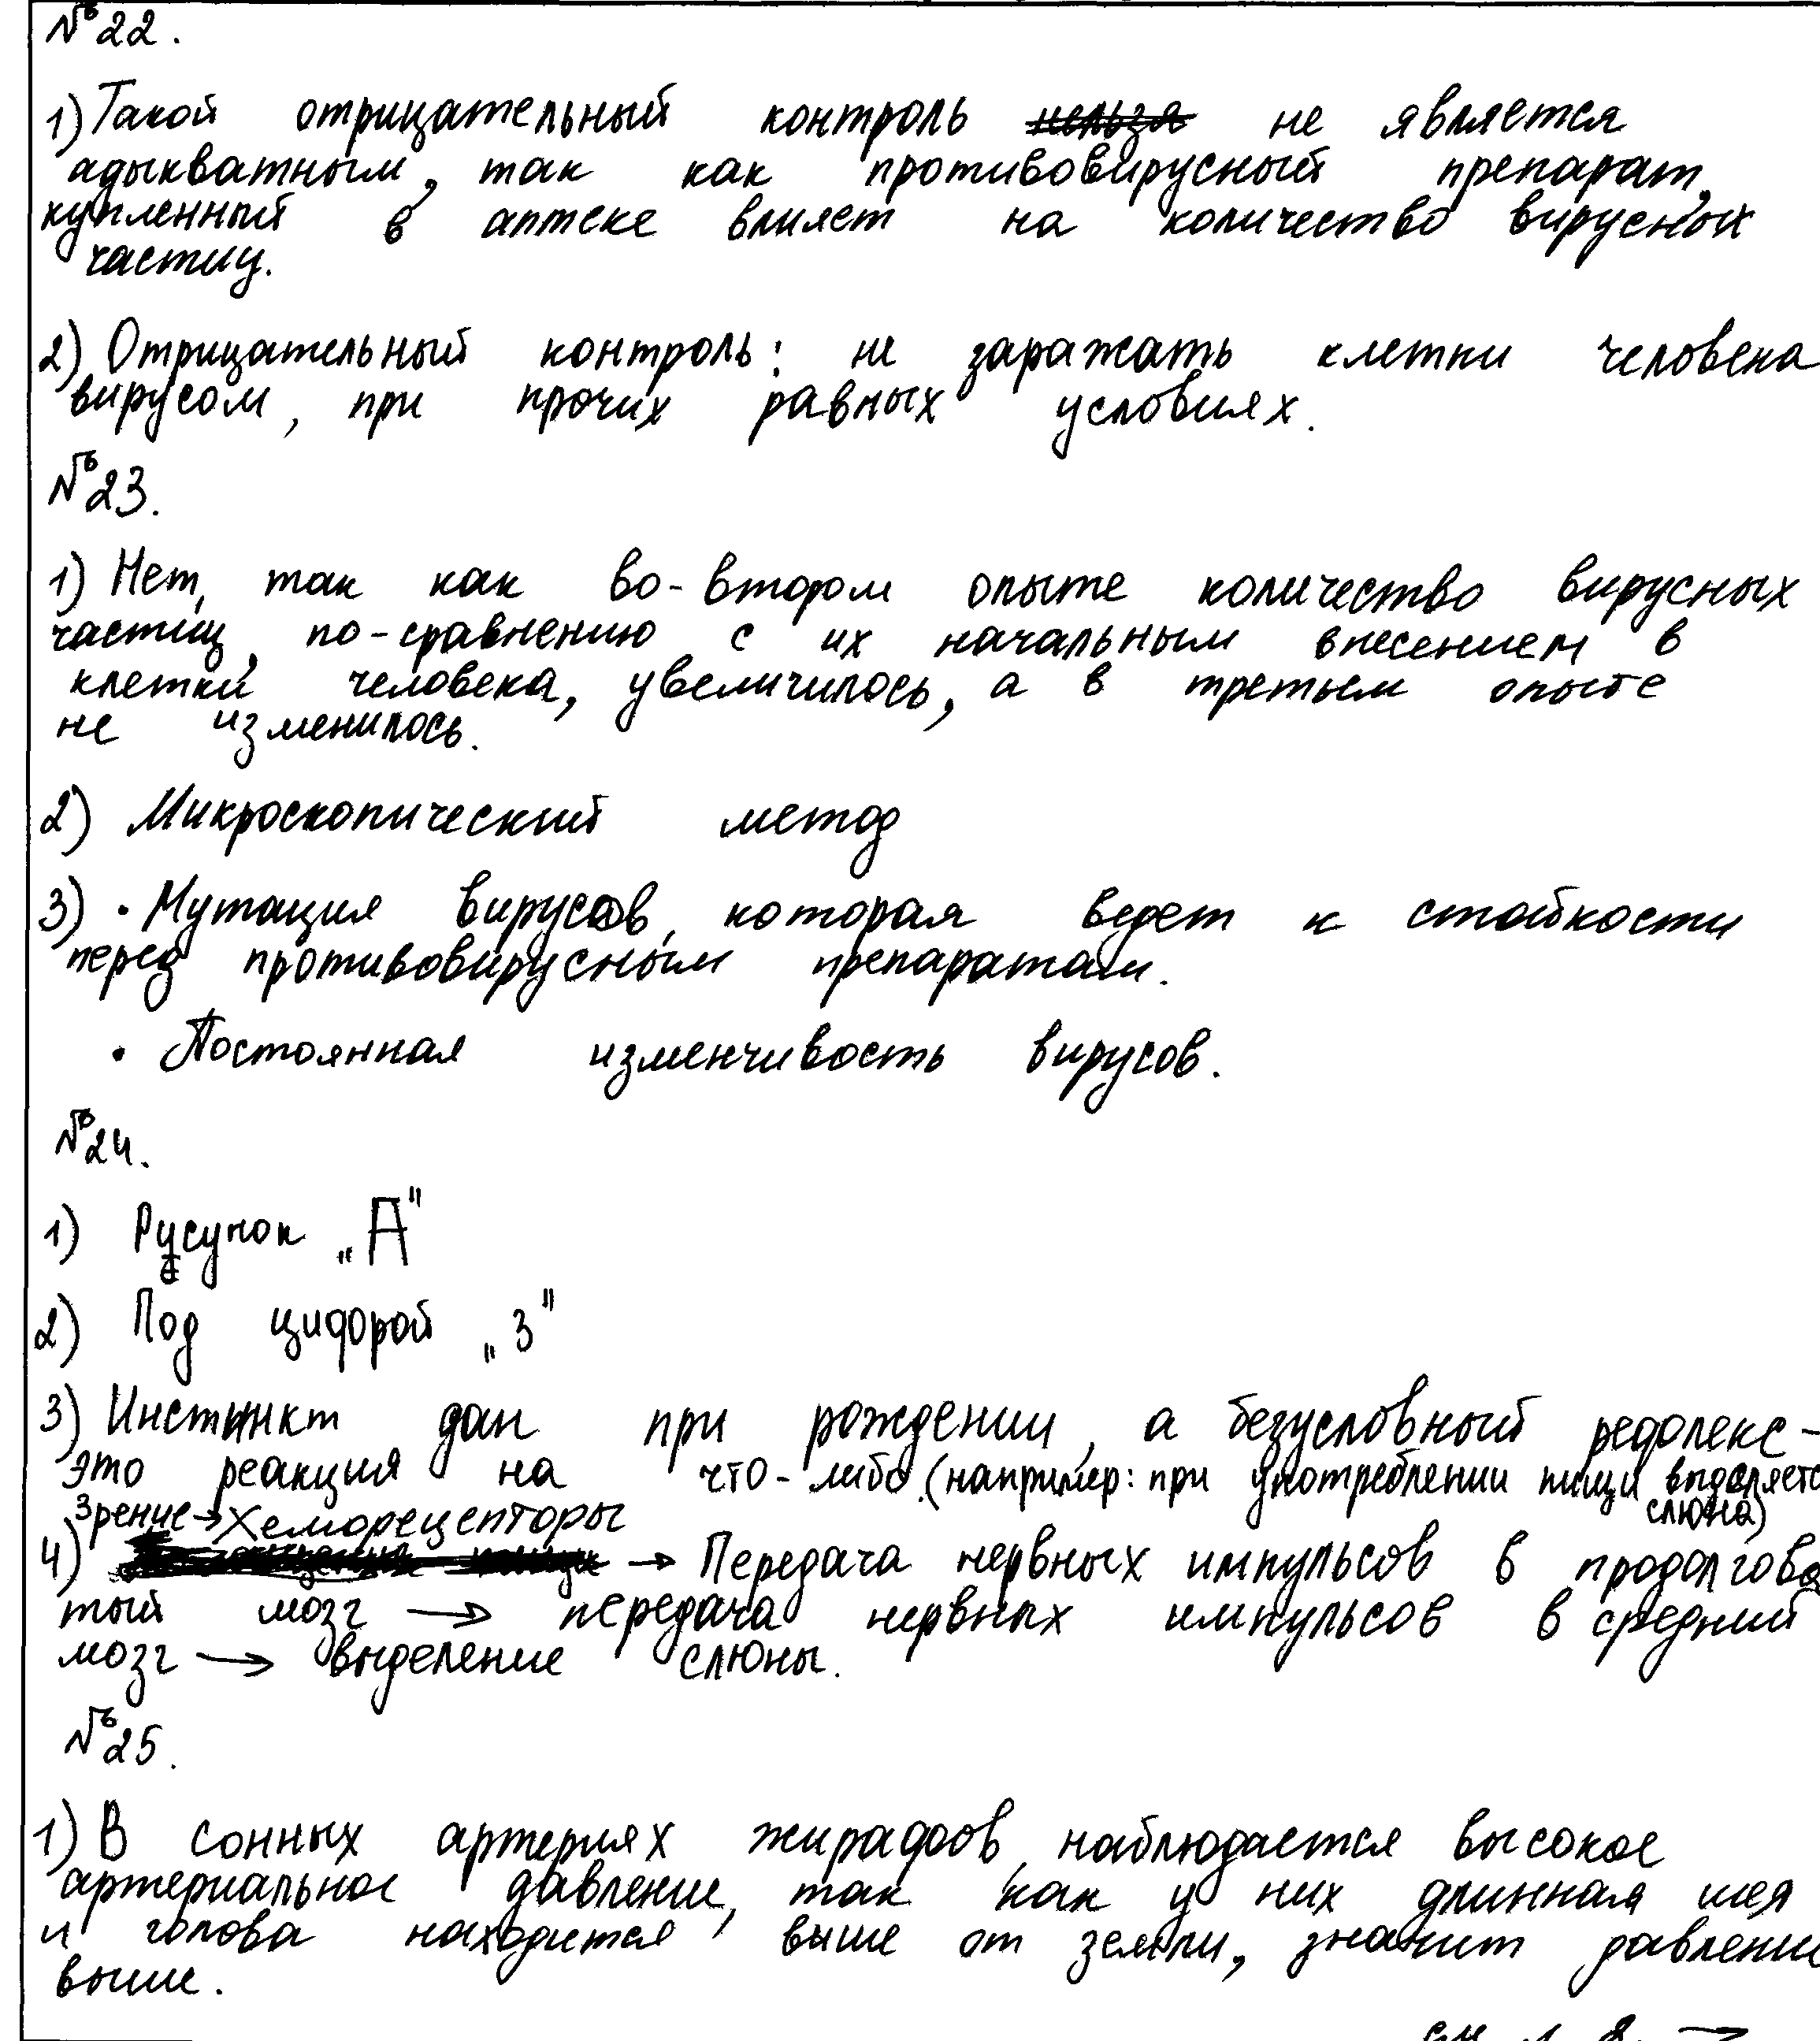 №22.
1) Такой отрицательный контроль нельзя не является
адыкватным, так как противовирусный препарат,
купленный в аптеке влияет на количество вирусных
частиц.
2) Отрицательный контроль: не заражать клетки человека
вирусом, при прочих равных условиях.
№23.
1) Нет, так как во-втором опыте количество вирусных
частиц, по-сравнению с их начальным внесением в
клетки человека, увеличилось, а в третьем опыте
не изменилось.
2) Микроскопический метод
3) • Мутация вирусов, которая ведет к стойкости
перед противовирусным препаратам.
• Постоянная изменчивость вирусов.
№24.
1) Русунок „А"
2) Под цифрой „3"
3) Инстинкт дан при рождении, а безусловный рефлекс –
это реакция на что-либо. (например: при употреблении пищи выделяетс
слюна)
Зрение → Хеморецепторы
4) → Передача нервных импульсов в продолгова
тый мозг → передача нервных импульсов в средний
мозг → выделение слюны.
№25.
1) В сонных артериях жирафов, наблюдается высокое
артериальное давление, так как у них длинная шея
и голова находится выше от земли, значит давление
выше.